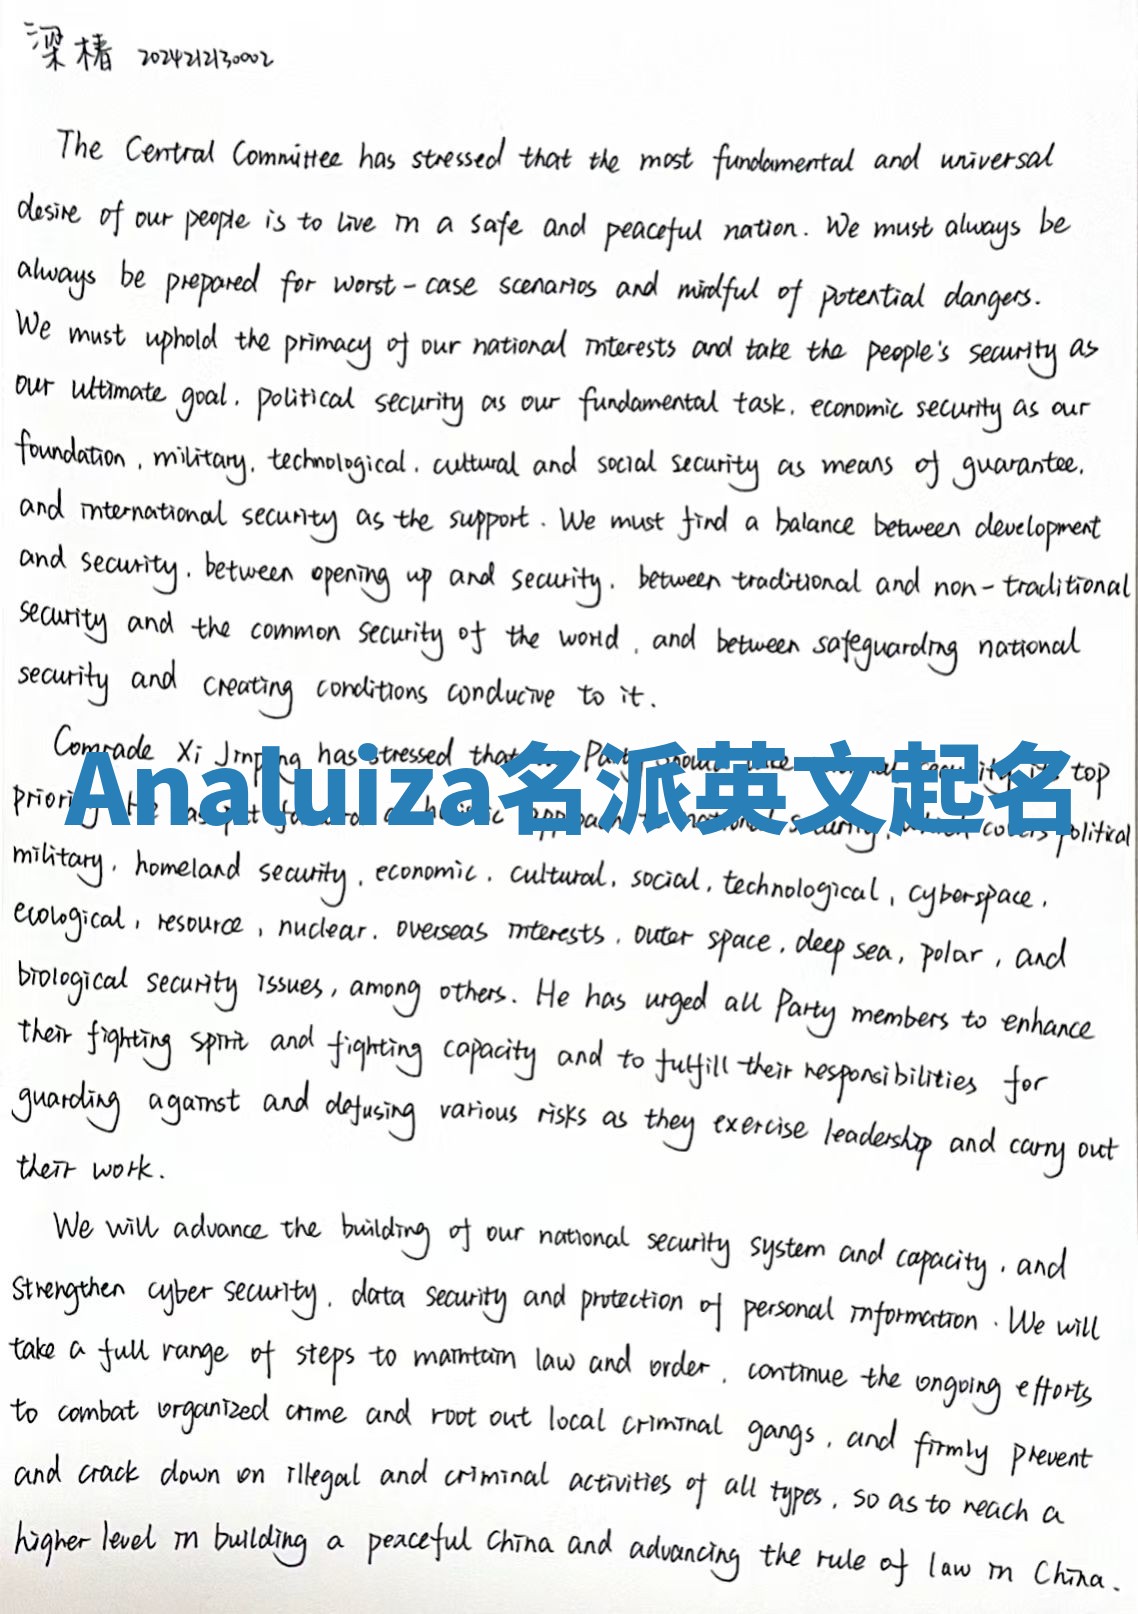 梁椿 2024212130002
The Central Committee has stressed that the most fundamental and universal
desire of our people is to live in a safe and peaceful nation. We must always be
always be prepared for worst-case scenarios and mindful of potential dangers.
We must uphold the primacy of our national interests and take the people's security as
our ultimate goal, political security as our fundamental task, economic security as our
foundation, military, technological, cultural and social security as means of guarantee,
and international security as the support. We must find a balance between development
and security, between opening up and security, between traditional and non-traditional
security and the common security of the world, and between safeguarding national
security and creating conditions conducive to it.
Comrade Xi Jinping has stressed that Party should security its top
Analuiza名派英文起名
priority. He has put forward a holistic approach to national security, which covers political
military, homeland security, economic, cultural, social, technological, cyberspace,
ecological, resource, nuclear, overseas interests, outer space, deep sea, polar, and
biological security issues, among others. He has urged all Party members to enhance
their fighting spirit and fighting capacity and to fulfill their responsibilities for
guarding against and defusing various risks as they exercise leadership and carry out
their work.
We will advance the building of our national security system and capacity, and
strengthen cyber security, data security and protection of personal information. We will
take a full range of steps to maintain law and order, continue the ongoing efforts
to combat organized crime and root out local criminal gangs, and firmly prevent
and crack down on illegal and criminal activities of all types, so as to reach a
higher level in building a peaceful China and advancing the rule of law in China.